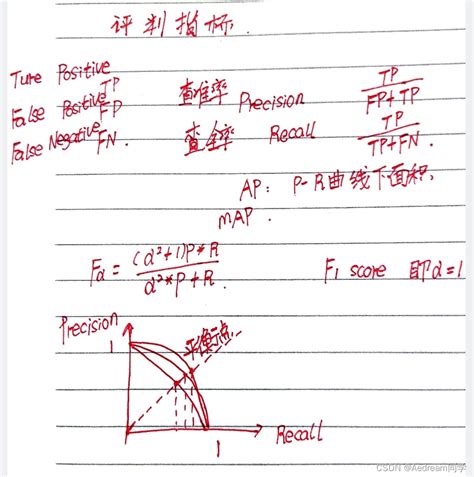 评判指标.
Ture Positive TP
False Positive FP
False Negative FN.
查准率 Precision TP/FP+TP
查全率 Recall TP/TP+FN.
AP: P-R曲线下面积.
mAP.
Fα = (α²+1)P*R/α²*P+R. F1 score 即α=1
Precision
1
平衡点
1
Recall
CSDN @Aedream同学